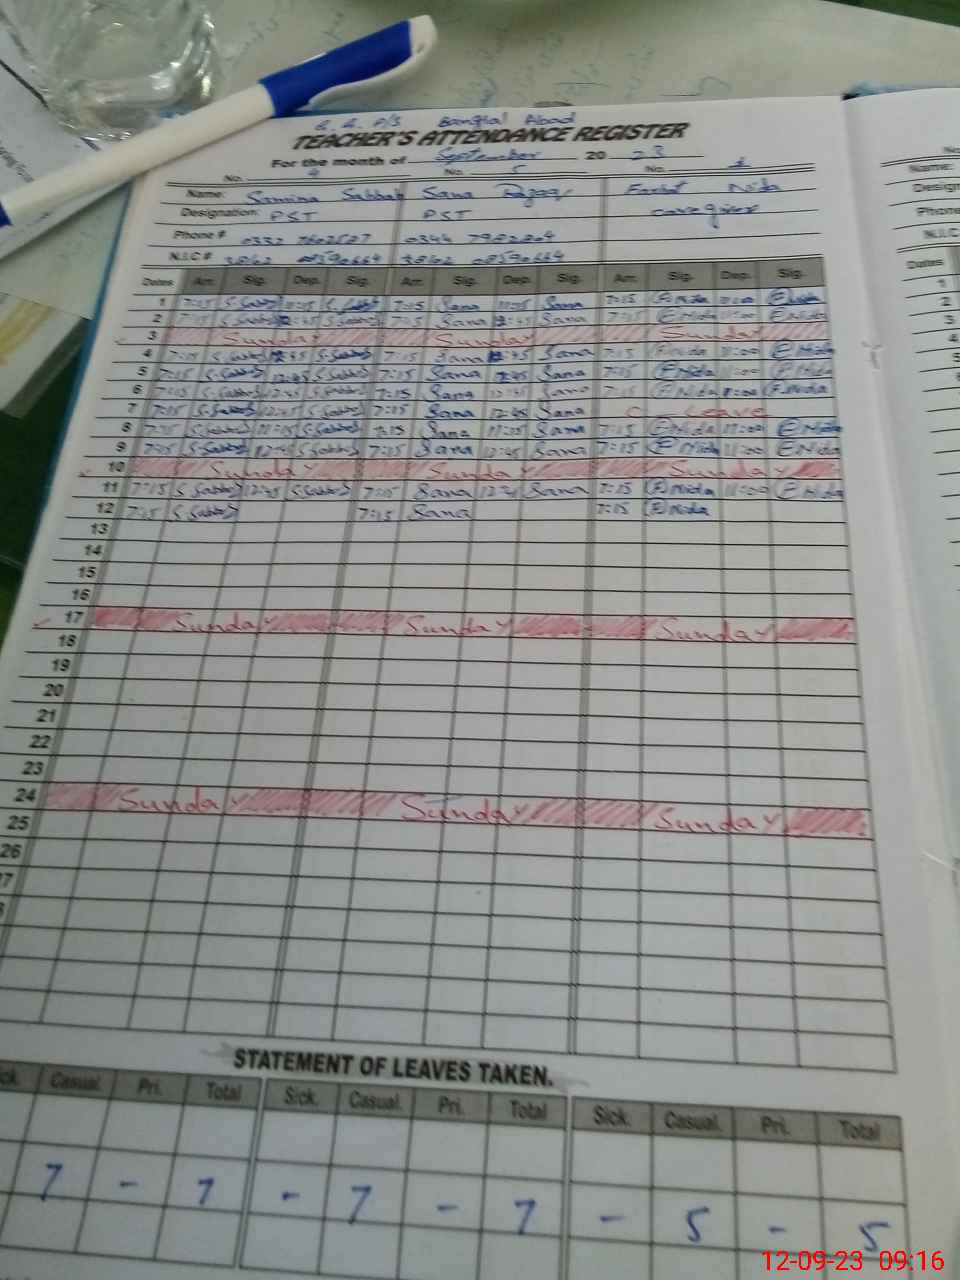 G. G. P/S Bangial Abad
TEACHER'S ATTENDANCE REGISTER
For the month of September 2023
No. 4 No. 5 No. 6
Name: Samina Sabbah Sana Farhat Nida
Designation: PST PST caregiver
Phone # 0332 0344
N.I.C #
Dates Arr. Sig. Dep. Sig. Arr. Sig. Dep. Sig. Arr. Sig. Dep. Sig.
1 7:15 S.Sabbah 11:15 S.Sabbah 7:15 Sana 11:15 Sana 7:15 F Nida 11:00 F Nida
2 7:15 S.Sabbah 12:45 S.Sabbah 7:15 Sana 12:45 Sana 7:15 F Nida 11:00 F Nida
3 Sunday Sunday Sunday
4 7:15 S.Sabbah 12:45 S.Sabbah 7:15 Sana 12:45 Sana 7:15 F Nida 11:00 F Nida
5 7:15 S.Sabbah 12:45 S.Sabbah 7:15 Sana 12:45 Sana 7:15 F Nida 11:00 F Nida
6 7:15 S.Sabbah 12:45 S.Sabbah 7:15 Sana 12:45 Sana 7:15 F Nida 11:00 F.Nida
7 7:15 S.Sabbah 12:45 S.Sabbah 7:15 Sana 12:45 Sana C Leave
8 7:15 S.Sabbah 11:15 S.Sabbah 7:15 Sana 11:15 Sana 7:15 F Nida 11:00 F Nida
9 7:15 S.Sabbah 12:45 S.Sabbah 7:15 Sana 12:45 Sana 7:15 F Nida 11:00 F Nida
10 Sunday Sunday Sunday
11 7:15 S.Sabbah 12:45 S.Sabbah 7:15 Sana 12:45 Sana 7:15 F Nida 11:00 F Nida
12 7:15 S.Sabbah 7:15 Sana 7:15 F Nida
13
14
15
16
17 Sunday Sunday Sunday
18
19
20
21
22
23
24 Sunday Sunday Sunday
25
26
STATEMENT OF LEAVES TAKEN.
Casual. Pri. Total Sick. Casual. Pri. Total Sick. Casual. Pri. Total
7 - 7 - 7 - 7 - 5 - 5
12-09-23 09:16